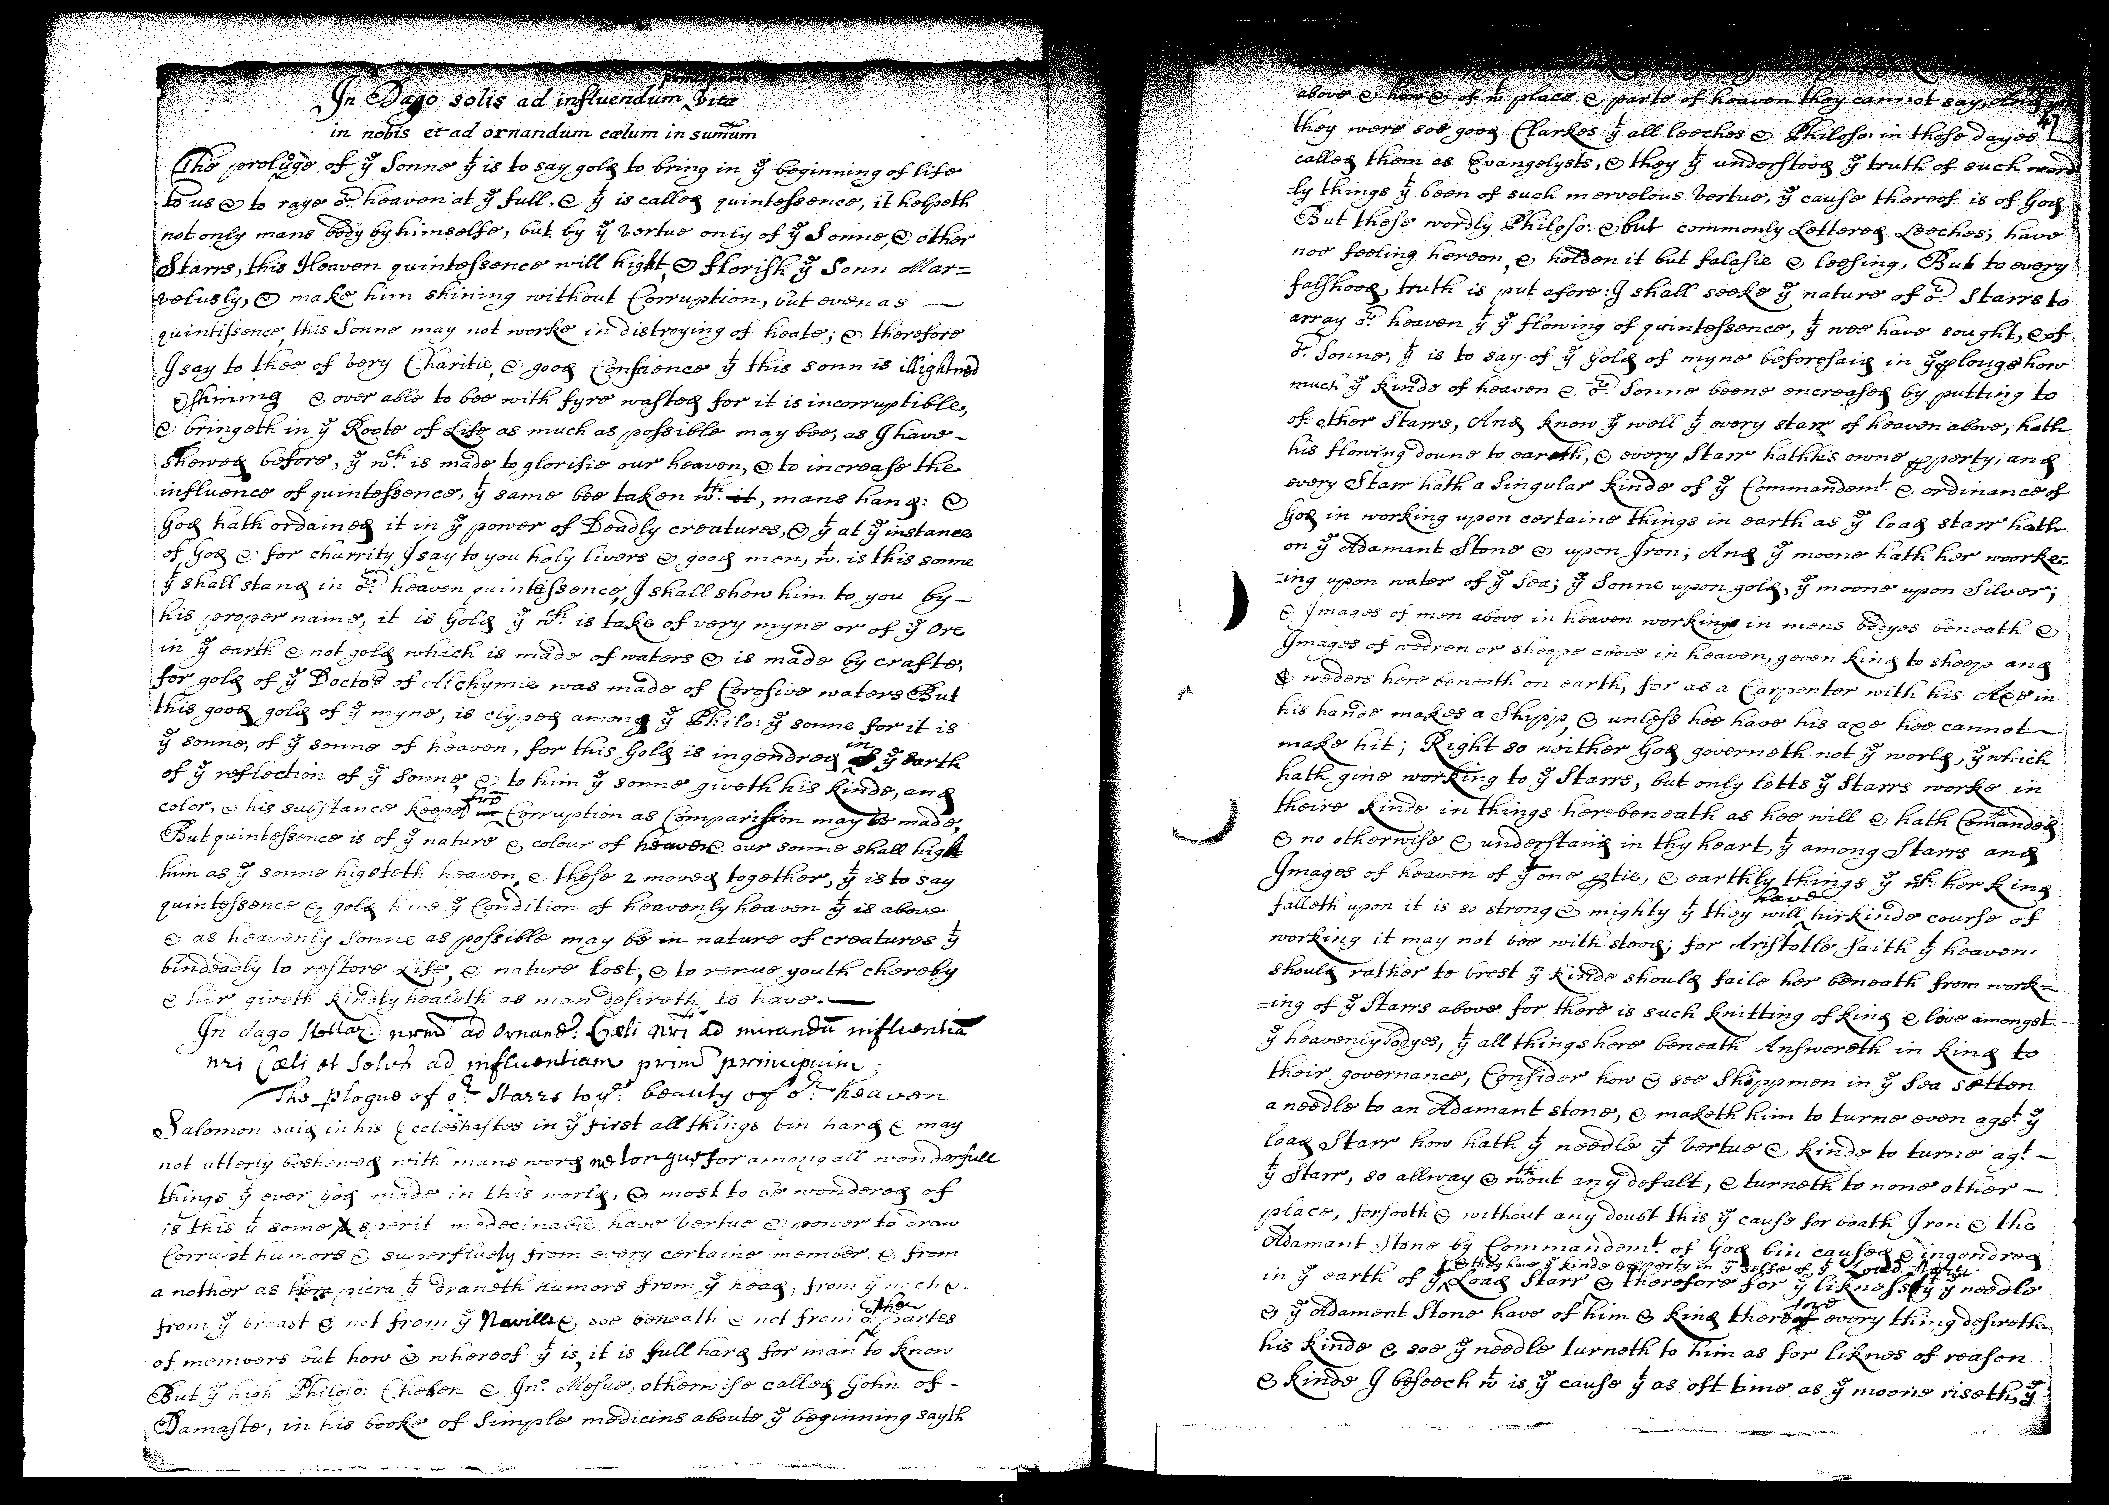 In Dago solis ad influendum principium vitæ
in nobis et ad ornandum cælum in sumum
The prologe of yͤ Sonne yͭ is to say gold to bring in yͤ beginning of life
to us & to raye oʳ heaven at yͤ full, & yͭ is called quintessence, it helpeth
not only mans body by himselfe, but by yͤ vertue only of yͤ Sonne, & other
Starrs, this Heaven quintessence will hight, & florish yͤ Sonn Mar=
velusly, & make him shining without Corruption, but even as —
quintissence this Sonne may not worke in distroying of heate; & therefore
I say to thee of very Charitie, & good Consience yͭ this sonn is illightned
& shining & over able to bee with fyre wasted for it is incorruptible,
& bringeth in yͤ Roote of Life as much as possible may bee, as I have -
shewed before, yͤ wᶜʰ is made to glorifie our heaven, & to increase the
influence of quintessence, yͭ same bee taken wᵗʰ it, mans hand: &
God hath ordained it in yͤ power of Deadly creatures, & yͭ at yͤ instance
of God & for charrity I say to you holy livers & good men, wͭ is this sonne
yͭ shall stand in oʳ heaven quintessence, I shall shew him to you by -
his proper name, it is Gold yͤ wᶜʰ is take of very myne or of yͤ Ore
in yͤ earth & not gold which is made of waters & is made by crafte,
for gold of yͤ Doctoʳˢ of Alchymie was made of Corosive waters But
this good gold of yͤ myne, is clyped among yͤ Philo: yͤ sonne for it is
yͤ sonne, of yͤ sonne of heaven, for this Gold is ingendred in yͤ earth
of yͤ reflection of yͤ Sonne, & to him yͤ sonne giveth his kinde, and
color, & his substance keeped fro Corruption as Comparison may be made,
But quintessence is of yͤ nature & colour of heaven & our sonne shall hight
him as yͤ sonne higeteth heaven, & these 2 moved together, yͭ is to say
quintessence & gold have yͤ Condition of heavenly heaven yͭ is above
& as heavenly Sonne as possible may be in nature of creatures yͭ
bindeadly to restore Life, & nature lost, & to renue youth thereby
& hir giveth kindly healeth as man desireth to have. —
In dago stellar: nrm̄ ad Ornand: Cæli nri ad mirandū influentiā
nri Cæli et Solis ad influentiam prim̄ principium;
The plogue of oʳ Starrs to yͤ beauty of oʳ heaven
Salomon said in his Ecclesiastes in yͤ first all things bin hard & may
not utterly beshewed with mans word ne tongue, for among all wonderfull
things yͭ ever God made in this world, & most to be wondered of
is this yͭ some spirit medecinable have vertue & power to draw
Corrupt humors & superfluety from every certaine member & from
a nother as hera piera yͭ draweth humors from yͤ head, from yͤ neck &
from yͤ breast & not from yͤ Naville & soe beneath & not from other partes
of members but how & whereof yͭ is, it is full hard for man to know
But yͤ high Philoso: Cheben & Jnº Mesue, otherwise called John of -
Damaste, in his booke of Simple medicins aboute yͤ beginning sayth
above & how & of wͭ place & parte of heaven they cannot say, And
47
they were soe good Clarkes yͭ all leeches & Philoso: in those dayes
called them as Evangelysts, & they yͭ understood yͤ truth of such word
ly things yͭ been of such mervelous vertue, yͤ cause thereof is of God
But these wordly Philoso: & but commonly Lettered Leeches; have
noe feeling hereon, & holden it but falasie & leesing, But to every
falshood, truth is put afore: I shall seeke yͤ nature of oʳ Starrs to
array oʳ heaven yͭ yͤ flowing of quintessence, yͭ wee have sought, & of
oʳ Sonne, yͭ is to say of yͤ Gold of myne beforesaid in yͤ plouge how
much yͤ kinde of heaven & oʳ Sonne beene encreased by putting to
of other Starrs, And know yͤ well yͭ every starr of heaven above, hath
his flowing doune to earth, & every Starr hath his owne pperty, and
every Starr hath a Singular kinde of yͤ Commandemᵗ & ordinance of
God in working upon certaine things in earth as yͤ load starr hath
on yͤ Adamant Stone & upon Iron; And yͤ moone hath her worke-
=ing upon water of yͤ Sea; yͤ Sonne upon gold, yͤ moone upon Silver;
& Images of men above in heaven working in mens bodyes beneath &
Images of wedren or sheepe above in heaven, geven kind to sheep and
& weders here beneath on earth, for as a Carpenter with his Axe in
his hande makes a Shipp, & unless hee have his axe hee cannot —
make hit; Right so neither God governeth not yͤ world, yͤ which
hath gine working to yͤ Starrs, but only letts yͤ Starrs worke in
theire kinde in things here beneath as hee will & hath Comanded
& no otherwise & understand in thy heart, yͭ among Starrs and
Images of heaven of yͤ one ptie, & earthly things yͤ wᶜʰ her kind
falleth upon it is so strong & mighty yͭ they will have hir kinde course of
working it may not bee with stood; for Aristotle saith yͭ heaven
should rather to brest yͤ kinde should faile her beneath from work-
=ing of yͤ Starrs above for there is such knitting of kind & love amongst
yͤ heavenly bodyes, yͭ all things here beneath Answereth in kind to
their governance, Consider how & see Shippmen in yͤ Sea setten
a needle to an Adamant stone, & maketh him to turne even agst yͤ
load Starr how hath yͤ needle yͭ vertue & kinde to turne agᵗ —
yͭ Starr, so allway & wᵗʰout any defalt, & turneth to none other —
place, forsooth & without any doubt this yͤ cause for boath Iron & the
Adamant Stone by Commandemᵗ of God bin caused & ingendred
& they have yͤ kinde & pperty in yͤ selfe of yͤ Load Starr
in yͤ earth of yͤ Load Starr & therefore for yͤ likness yͤ needle
& yͤ Adament Stone have of him & kind therefore every thing desireth
his kinde & soe yͤ needle turneth to him as for liknes of reason
& kinde I beseech wͭ is yͤ cause yͭ as oft time as yͤ moone riseth, yͤ